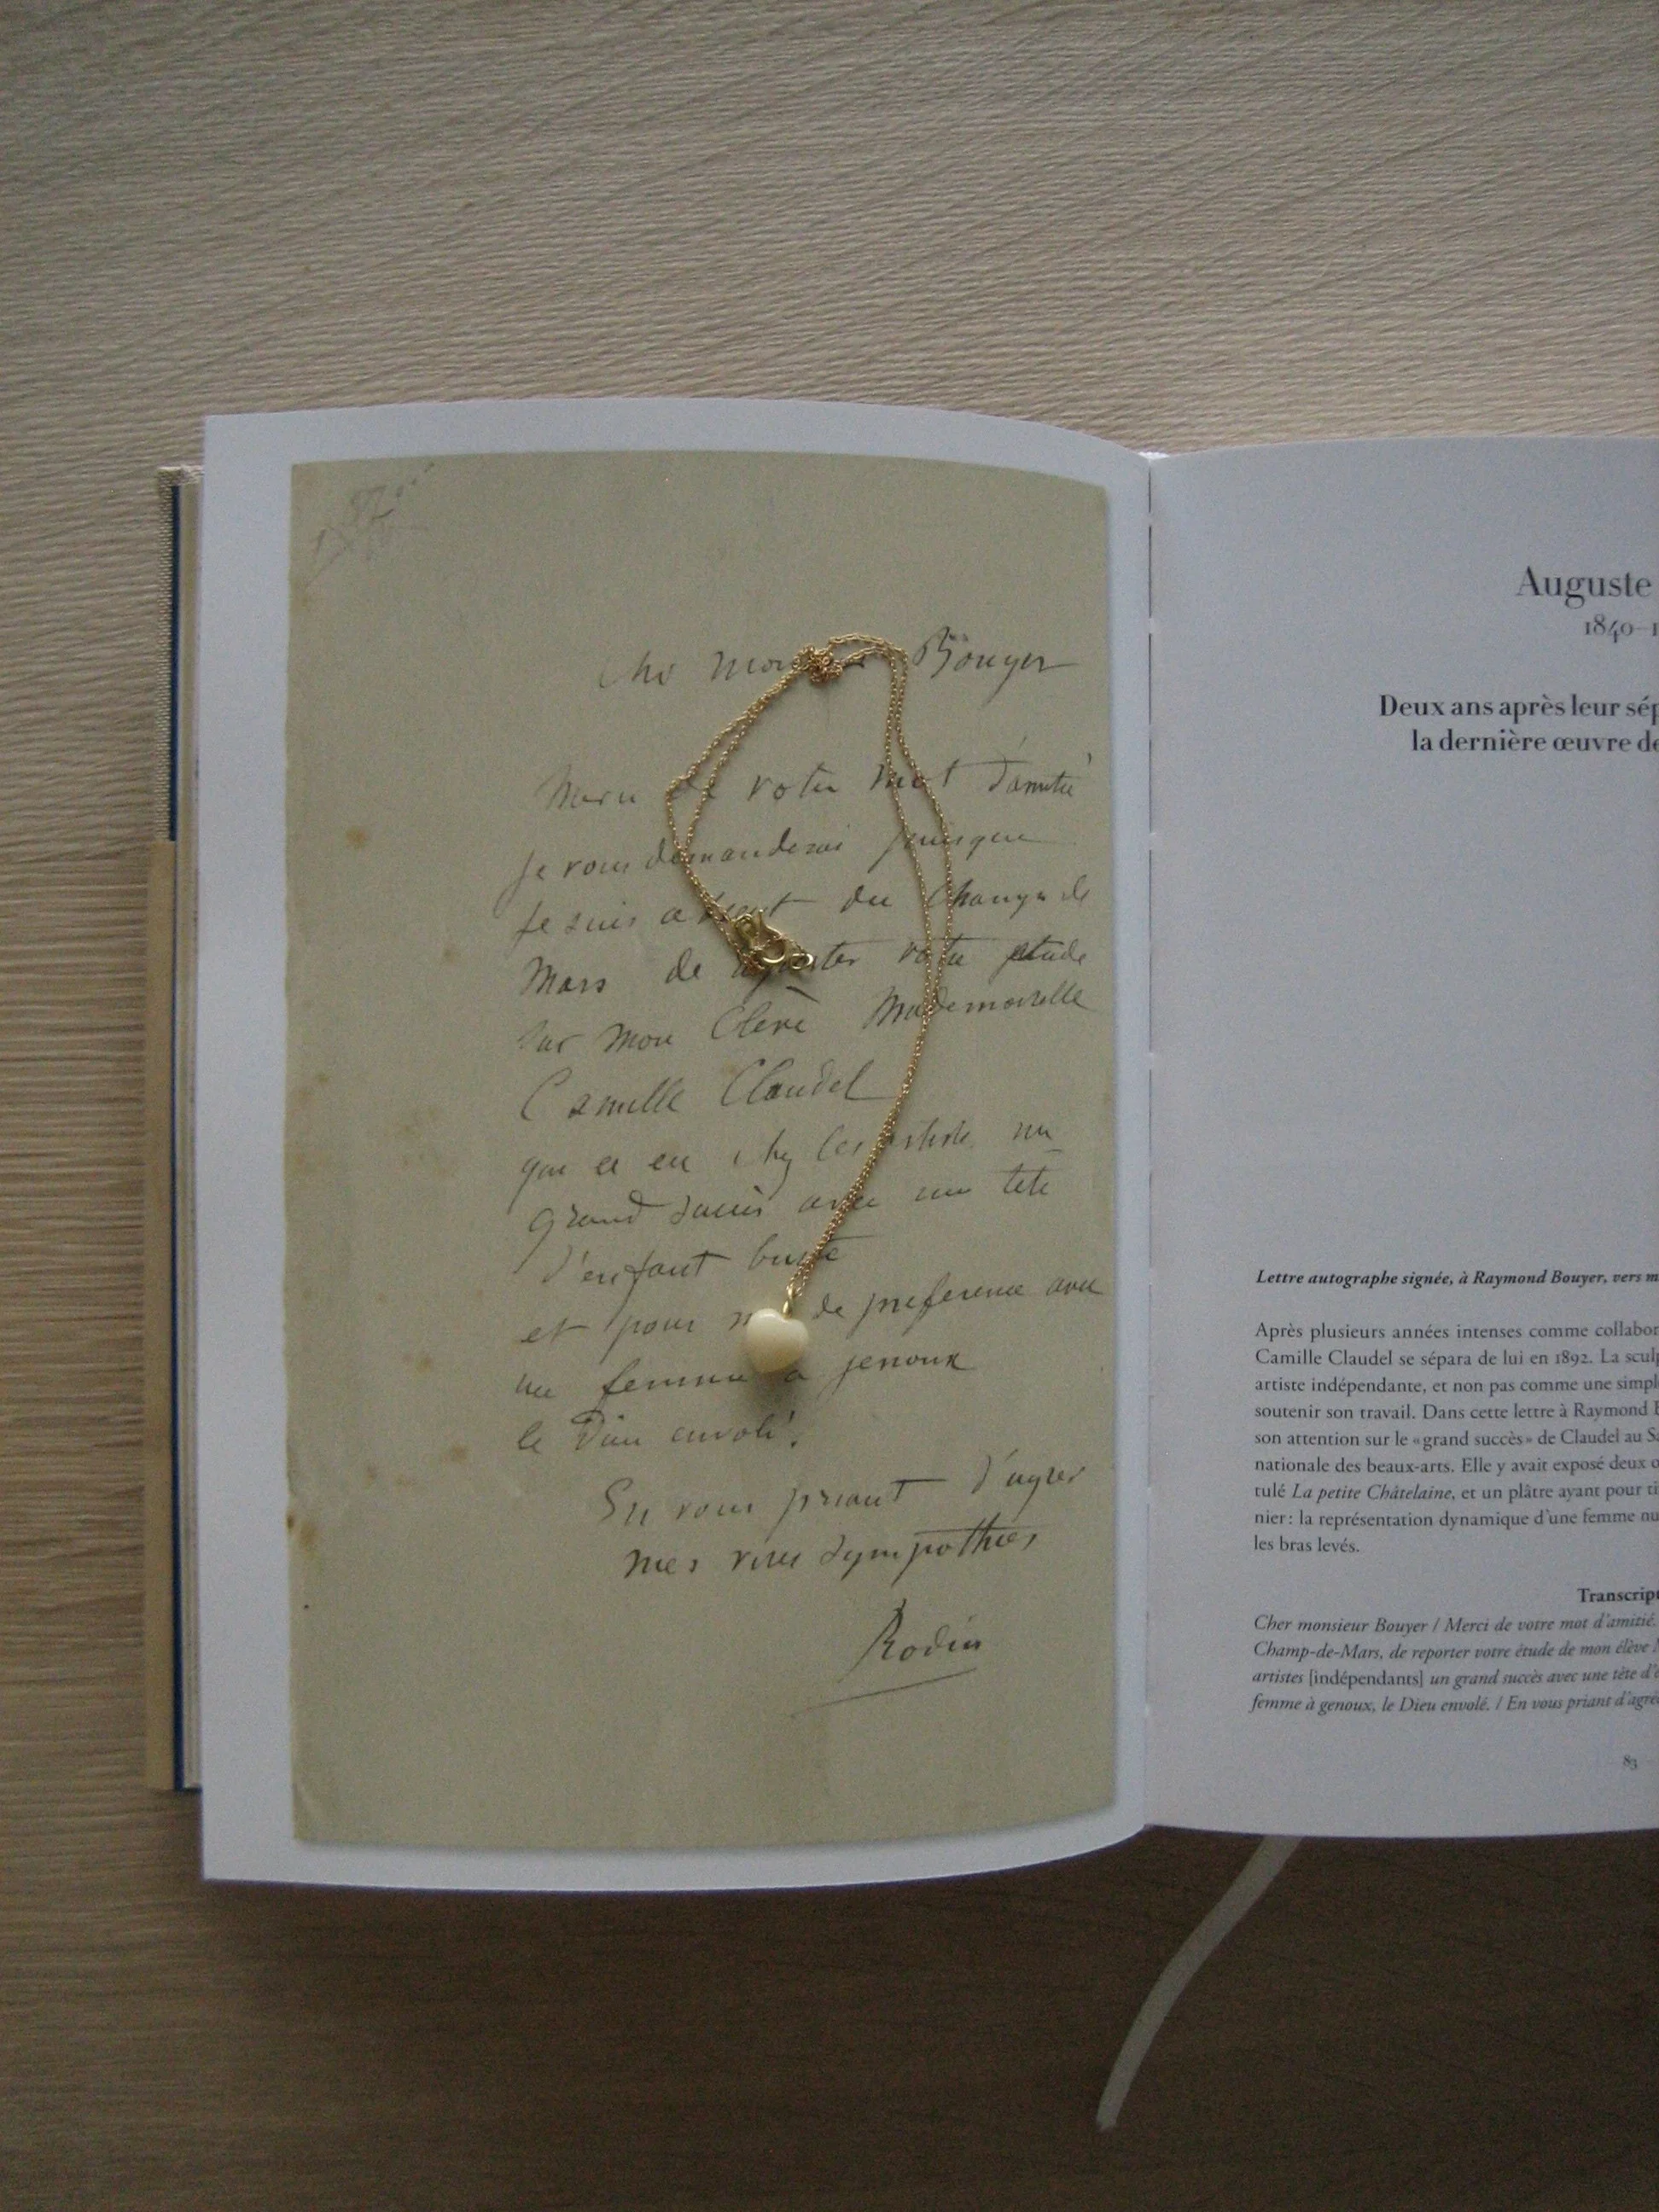 Bouyer
Merci de votre mot d'amitié
Je vous demanderai puisque
Je suis absent du Champ de
Mars de votre etude
sur mon Elève Mademoiselle
Camille Claudel
qui a eu chez les artiste un
grand succès avec une tete
d'enfant buste
et pour moi de preference avec
une femme a genoux
le Dieu envolé.
En vous priant d'agréer
mes vives sympathies
Rodin
Auguste
1840–1
Deux ans après leur sép
la dernière œuvre de
Lettre autographe signée, à Raymond Bouyer, vers m
Après plusieurs années intenses comme collabor
Camille Claudel se sépara de lui en 1892. La sculp
artiste indépendante, et non pas comme une simpl
soutenir son travail. Dans cette lettre à Raymond B
son attention sur le «grand succès» de Claudel au Sa
nationale des beaux-arts. Elle y avait exposé deux o
tulé La petite Châtelaine, et un plâtre ayant pour ti
nier: la représentation dynamique d'une femme nu
les bras levés.
Transcript
Cher monsieur Bouyer / Merci de votre mot d'amitié.
Champ-de-Mars, de reporter votre étude de mon élève
artistes [indépendants] un grand succès avec une tête d'e
femme à genoux, le Dieu envolé. / En vous priant d'agré
83